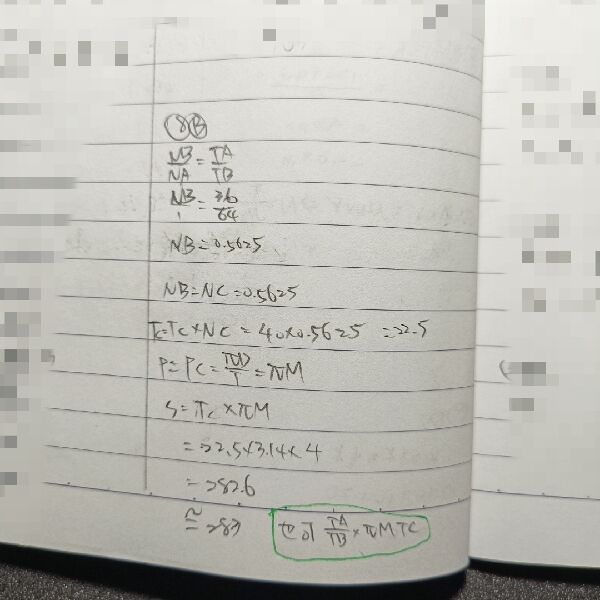 ⑧Ⓑ
NB/NA = TA/TB
NB/1 = 36/64
NB=0.5625
NB=NC=0.5625
Tc=Tc×NC = 40×0.5625 =22.5
P=Pc= πD/T =πM
S=Tc×πM
=22.5×3.14×4
=282.6
≅283 也可 TA/TB × πMTC